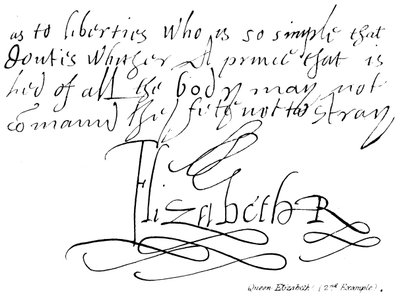 as to liberties who is so simple that
doutis whither A prince that is
hed of all the body may not
cōmannd the fete not to stray
Elizabeth R
Queen Elizabeth (2nd Example).